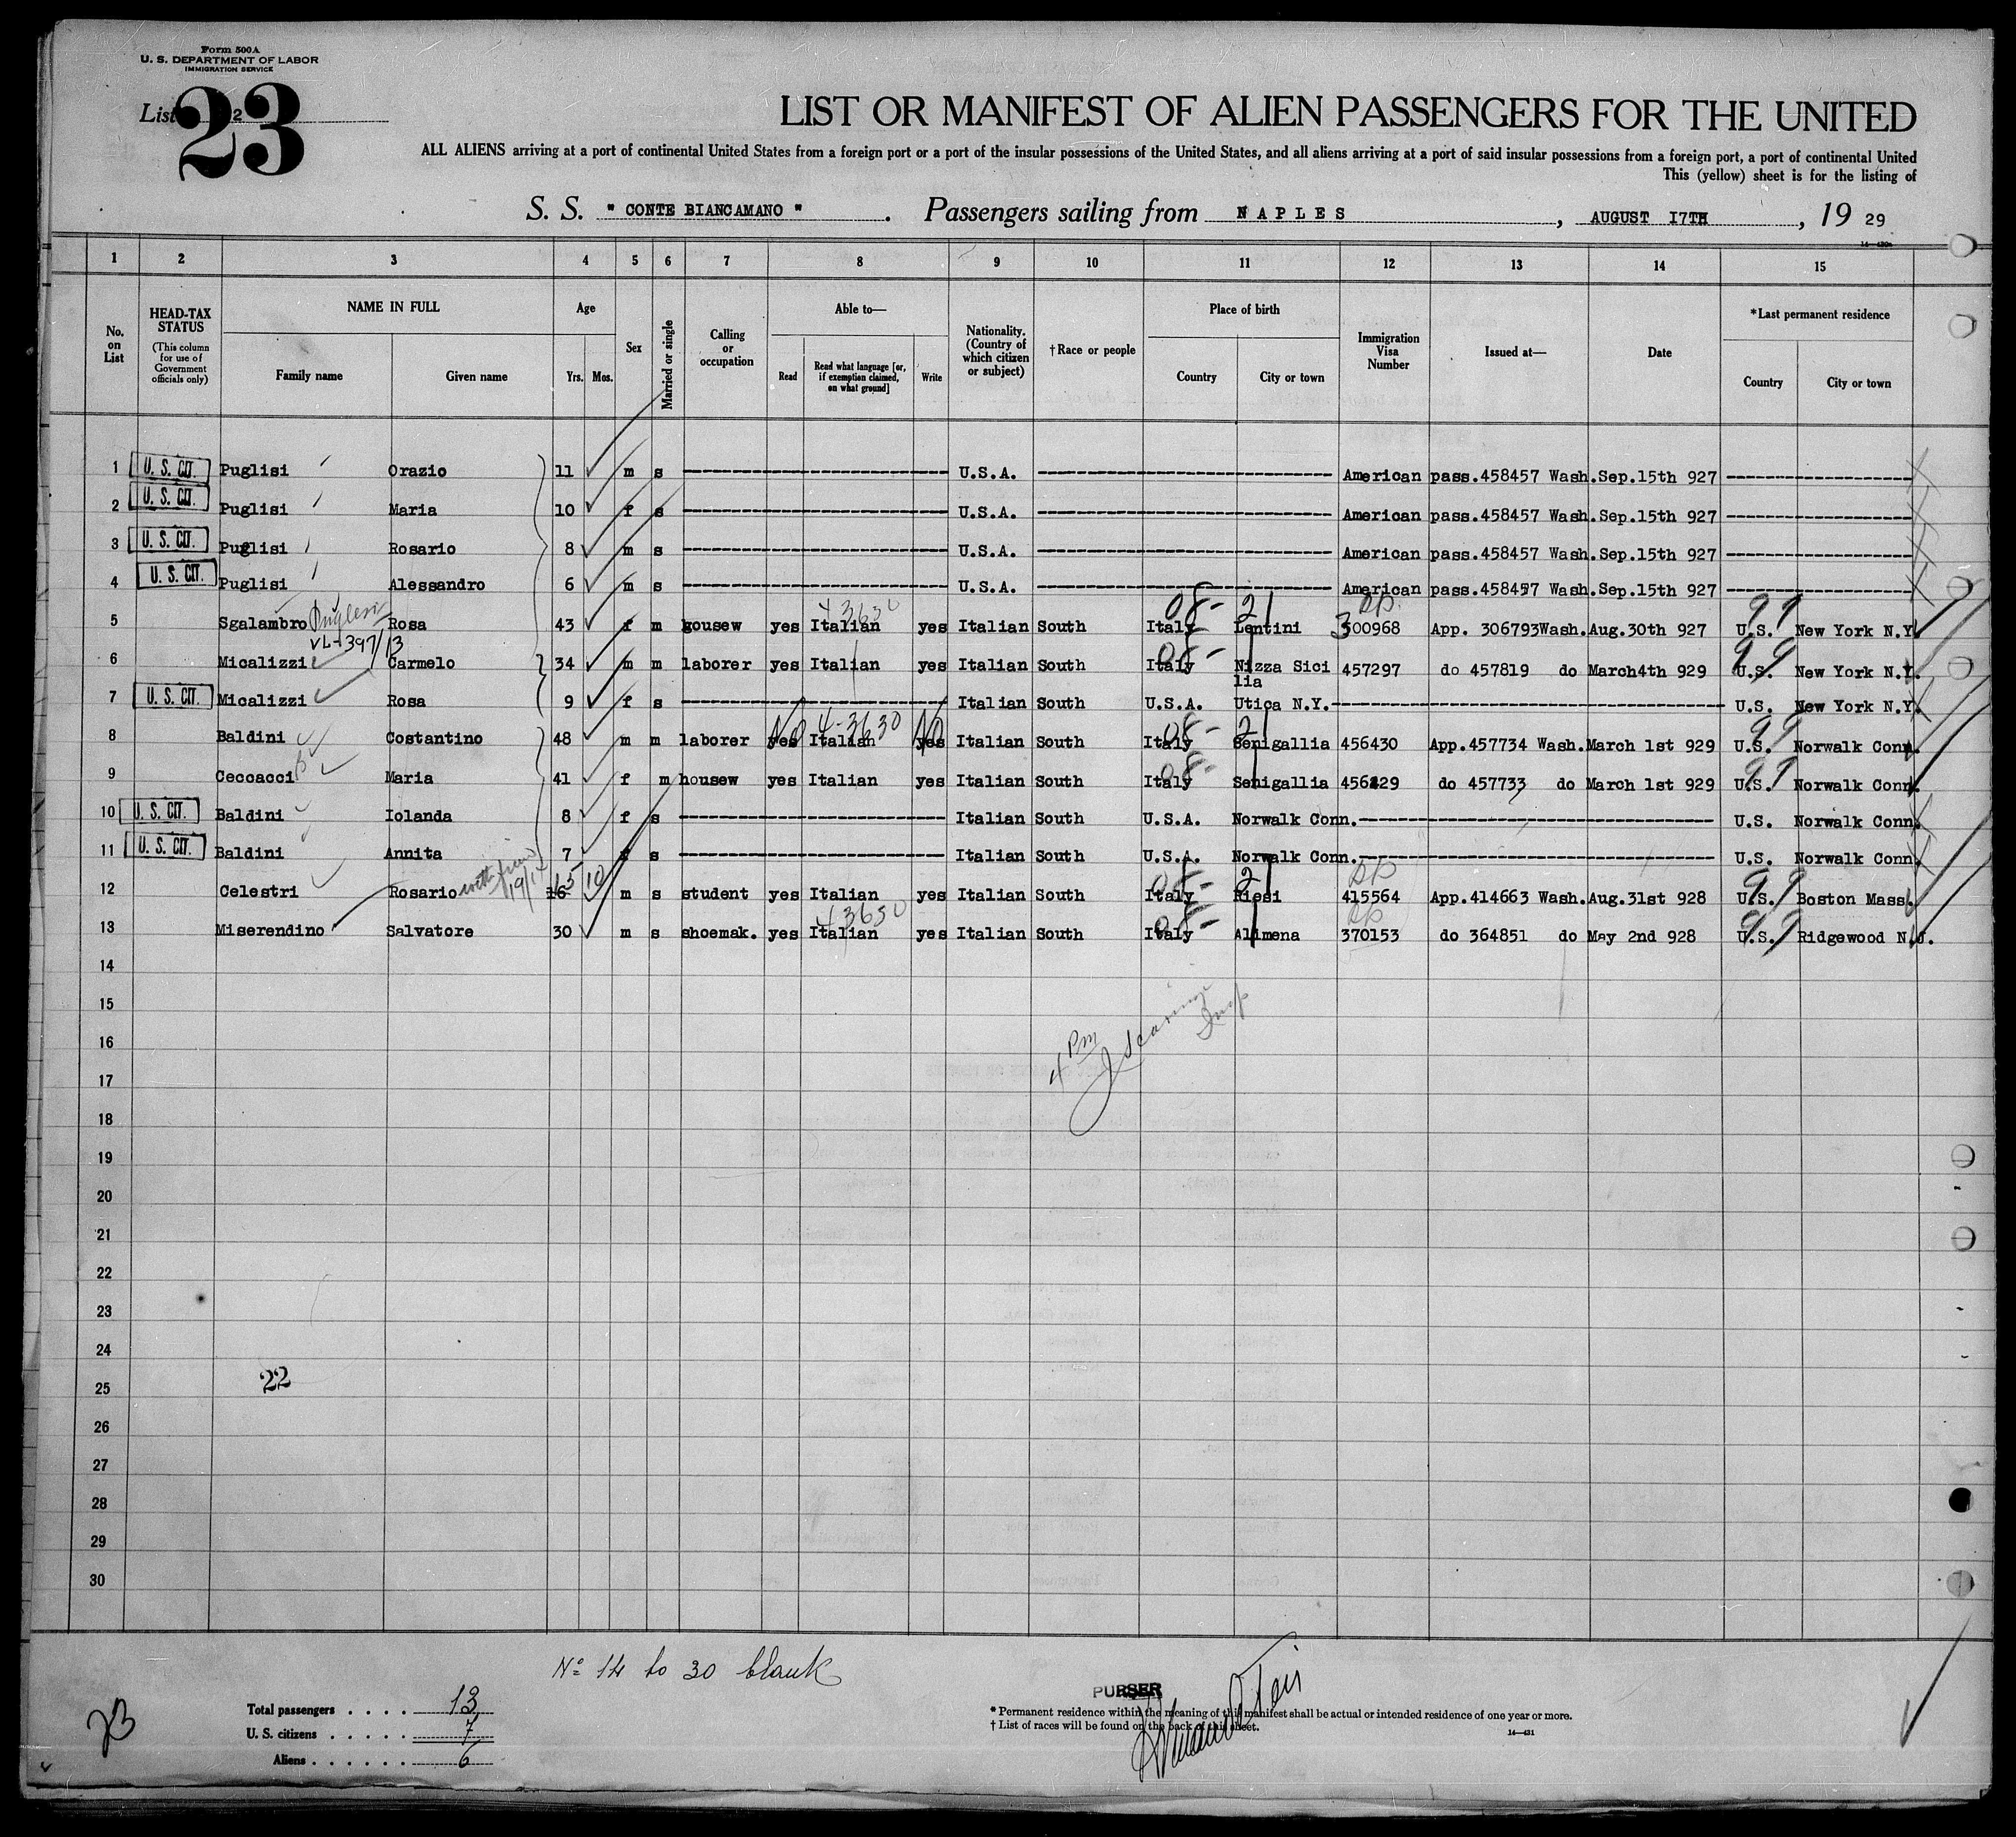 Form 500A
U. S. DEPARTMENT OF LABOR
IMMIGRATION SERVICE
List 2
23
LIST OR MANIFEST OF ALIEN PASSENGERS FOR THE UNITED
ALL ALIENS arriving at a port of continental United States from a foreign port or a port of the insular possessions of the United States, and all aliens arriving at a port of said insular possessions from a foreign port, a port of continental United
This (yellow) sheet is for the listing of
S. S. " CONTE BIANCAMANO " . Passengers sailing from NAPLES , AUGUST I7TH , 19 29
1 2 3 4 5 6 7 8 9 10 11 12 13 14 15
No. on List
HEAD-TAX STATUS
(This column for use of Government officials only)
NAME IN FULL
Family name Given name
Age
Yrs. Mos.
Sex
Married or single
Calling or occupation
Able to—
Read
Read what language [or, if exemption claimed, on what ground]
Write
Nationality. (Country of which citizen or subject)
† Race or people
Place of birth
Country City or town
Immigration Visa Number
Issued at—
Date
* Last permanent residence
Country City or town
1 U. S. CIT. Puglisi Orazio 11 m s U.S.A. American pass.458457 Wash.Sep.15th 927
2 U. S. CIT. Puglisi Maria 10 f s U.S.A. American pass.458457 Wash.Sep.15th 927
3 U. S. CIT. Puglisi Rosario 8 m s U.S.A. American pass.458457 Wash.Sep.15th 927
4 U. S. CIT. Puglisi Alessandro 6 m s U.S.A. American pass.458457 Wash.Sep.15th 927
5 Sgalambro Puglesi Rosa 43 f m gousew yes Italian yes Italian South Italy Lentini 300968 App. 306793Wash.Aug.30th 927 U.S. New York N.Y.
6 Micalizzi Carmelo 34 m m laborer yes Italian yes Italian South Italy Nizza Sici lia 457297 do 457819 do March4th 929 U.S. New York N.Y.
7 U. S. CIT. Micalizzi Rosa 9 f s Italian South U.S.A. Utica N.Y. U.S. New York N.Y.
8 Baldini Costantino 48 m m laborer yes No Italian yes No Italian South Italy Senigallia 456430 App.457734 Wash.March 1st 929 U.S. Norwalk Conn.
9 Ceccacci Maria 41 f m housew yes Italian yes Italian South Italy Senigallia 456429 do 457733 do March 1st 929 U.S. Norwalk Conn.
10 U. S. CIT. Baldini Iolanda 8 f s Italian South U.S.A. Norwalk Conn. U.S. Norwalk Conn.
11 U. S. CIT. Baldini Annita 7 f s Italian South U.S.A. Norwalk Conn. U.S. Norwalk Conn.
12 Celestri Rosario 16 15 10 m s student yes Italian yes Italian South Italy Riesi 415564 App.414663 Wash.Aug.31st 928 U.S. Boston Mass.
13 Miserendino Salvatore 30 m s shoemak. yes Italian yes Italian South Italy Alimena 370153 do 364851 do May 2nd 928 U.S. Ridgewood N.J.
14
15
16
17
18
19
20
21
22
23
24
25
26
27
28
29
30
4 Pm
22
No 14 to 30 blank
23
Total passengers . . . . 13
U. S. citizens . . . . . 7
Aliens . . . . . . 6
PURSER
* Permanent residence within the meaning of this manifest shall be actual or intended residence of one year or more.
† List of races will be found on the back of this sheet.
14—431